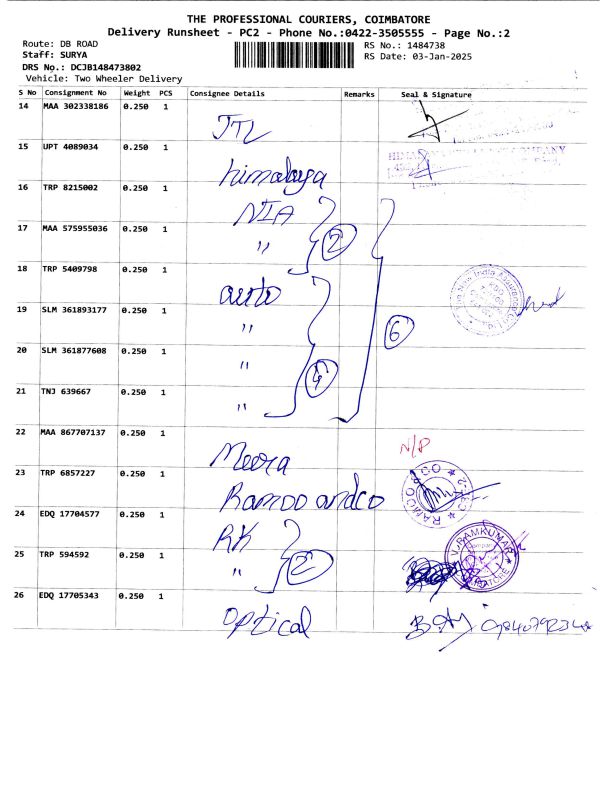 THE PROFESSIONAL COURIERS, COIMBATORE
Delivery Runsheet - PC2 - Phone No.:0422-3505555 - Page No.:2
Route: DB ROAD RS No.: 1484738
Staff: SURYA RS Date: 03-Jan-2025
DRS No.: DCJB148473802
Vehicle: Two Wheeler Delivery
S No Consignment No Weight PCS Consignee Details Remarks Seal & Signature
14 MAA 302338186 0.250 1 JTL
15 UPT 4089034 0.250 1 himalaya
16 TRP 8215002 0.250 1 NIA
17 MAA 575955036 0.250 1 " 2
18 TRP 5409798 0.250 1 auto
19 SLM 361893177 0.250 1 " 6
20 SLM 361877608 0.250 1 " 4
21 TNJ 639667 0.250 1 "
22 MAA 867707137 0.250 1 Meera N/P
23 TRP 6857227 0.250 1 Ramoo andco RAMOO & CO
24 EDQ 17704577 0.250 1 RK V.RAMKUMAR
25 TRP 594592 0.250 1 " 2
26 EDQ 17705343 0.250 1 optical